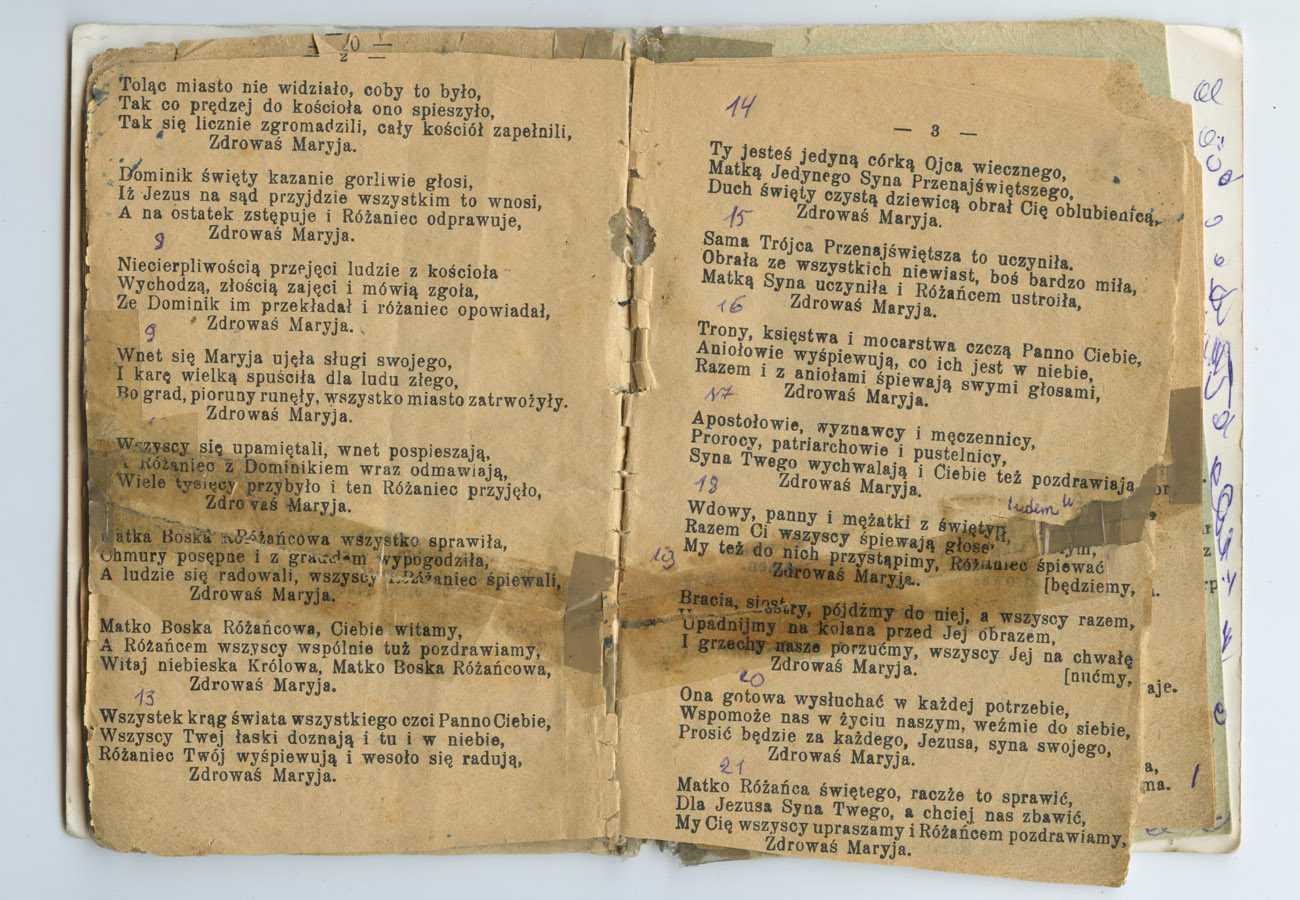 2
Toląc miasto nie widziało, coby to było,
Tak co prędzej do kościoła ono spieszyło,
Tak się licznie zgromadzili, cały kościół zapełnili,
Zdrowaś Maryja.
Dominik święty kazanie gorliwie głosi,
Iż Jezus na sąd przyjdzie wszystkim to wnosi,
A na ostatek zstępuje i Różaniec odprawuje,
Zdrowaś Maryja.
8
Niecierpliwością przejęci ludzie z kościoła
Wychodzą, złością zajęci i mówią zgoła,
Ze Dominik im przekładał i różaniec opowiadał,
Zdrowaś Maryja.
9
Wnet się Maryja ujęła sługi swojego,
I karę wielką spuściła dla ludu złego,
Bo grad, pioruny runęły, wszystko miasto zatrwożyły.
Zdrowaś Maryja.
Wszyscy się upamiętali, wnet pospieszają,
A Różaniec z Dominikiem wraz odmawiają,
Wiele tysięcy przybyło i ten Różaniec przyjęło,
Zdrowaś Maryja.
Matka Boska Różańcowa wszystko sprawiła,
Chmury posępne i z gradem wypogodziła,
A ludzie się radowali, wszyscy Różaniec śpiewali,
Zdrowaś Maryja.
Matko Boska Różańcowa, Ciebie witamy,
A Różańcem wszyscy wspólnie tuż pozdrawiamy,
Witaj niebieska Królowa, Matko Boska Różańcowa,
Zdrowaś Maryja.
13
Wszystek krąg świata wszystkiego czci Panno Ciebie,
Wszyscy Twej łaski doznają i tu i w niebie,
Różaniec Twój wyśpiewują i wesoło się radują,
Zdrowaś Maryja.
14
— 3 —
Ty jesteś jedyną córką Ojca wiecznego,
Matką Jedynego Syna Przenajświętszego,
Duch święty czystą dziewicą obrał Cię oblubienicą,
Zdrowaś Maryja.
15
Sama Trójca Przenajświętsza to uczyniła.
Obrała ze wszystkich niewiast, boś bardzo miła,
Matką Syna uczyniła i Różańcem ustroiła,
Zdrowaś Maryja.
16
Trony, księstwa i mocarstwa czczą Panno Ciebie,
Aniołowie wyśpiewują, co ich jest w niebie,
Razem i z aniołami śpiewają swymi głosami,
Zdrowaś Maryja.
17
Apostołowie, wyznawcy i męczennicy,
Prorocy, patriarchowie i pustelnicy,
Syna Twego wychwalają i Ciebie też pozdrawiają
Zdrowaś Maryja.
18
Wdowy, panny i mężatki z świętymi,
Razem Ci wszyscy śpiewają
My też do nich przystąpimy, Różaniec śpiewać
Zdrowaś Maryja. [będziemy,
19
Bracia, siostry, pójdźmy do niej, a wszyscy razem,
Upadnijmy na kolana przed Jej obrazem,
I grzechy nasze porzućmy, wszyscy Jej na chwałę
Zdrowaś Maryja. [nućmy,
20
Ona gotowa wysłuchać w każdej potrzebie,
Wspomoże nas w życiu naszym, weźmie do siebie,
Prosić będzie za każdego, Jezusa, syna swojego,
Zdrowaś Maryja.
21
Matko Różańca świętego, raczże to sprawić,
Dla Jezusa Syna Twego, a chciej nas zbawić,
My Cię wszyscy upraszamy i Różańcem pozdrawiamy,
Zdrowaś Maryja.